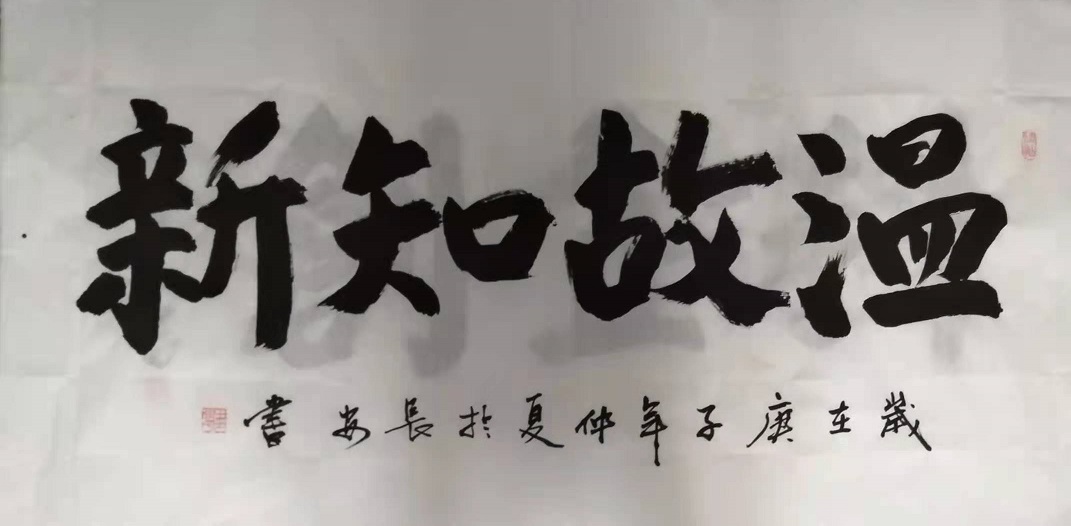 温故知新
歲在庚子年仲夏於長安書